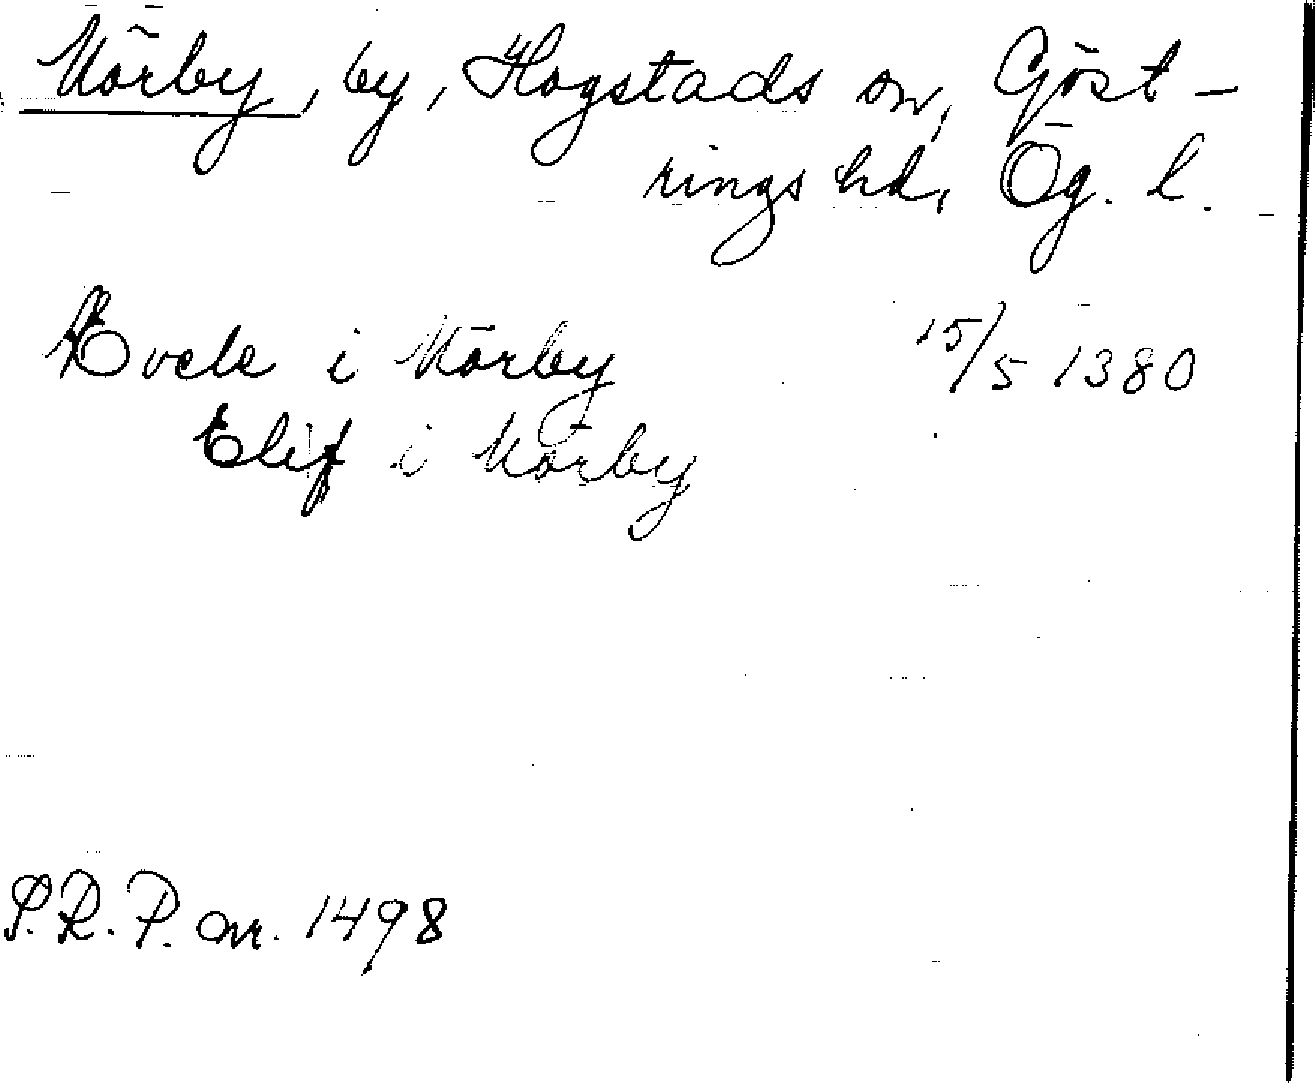 Mörby, by, Hogstads sn, Göst-
rings hd, Ög. l.
i Mörby 15/5 1380
Elif i Mörby
S.R.P. nr. 1498